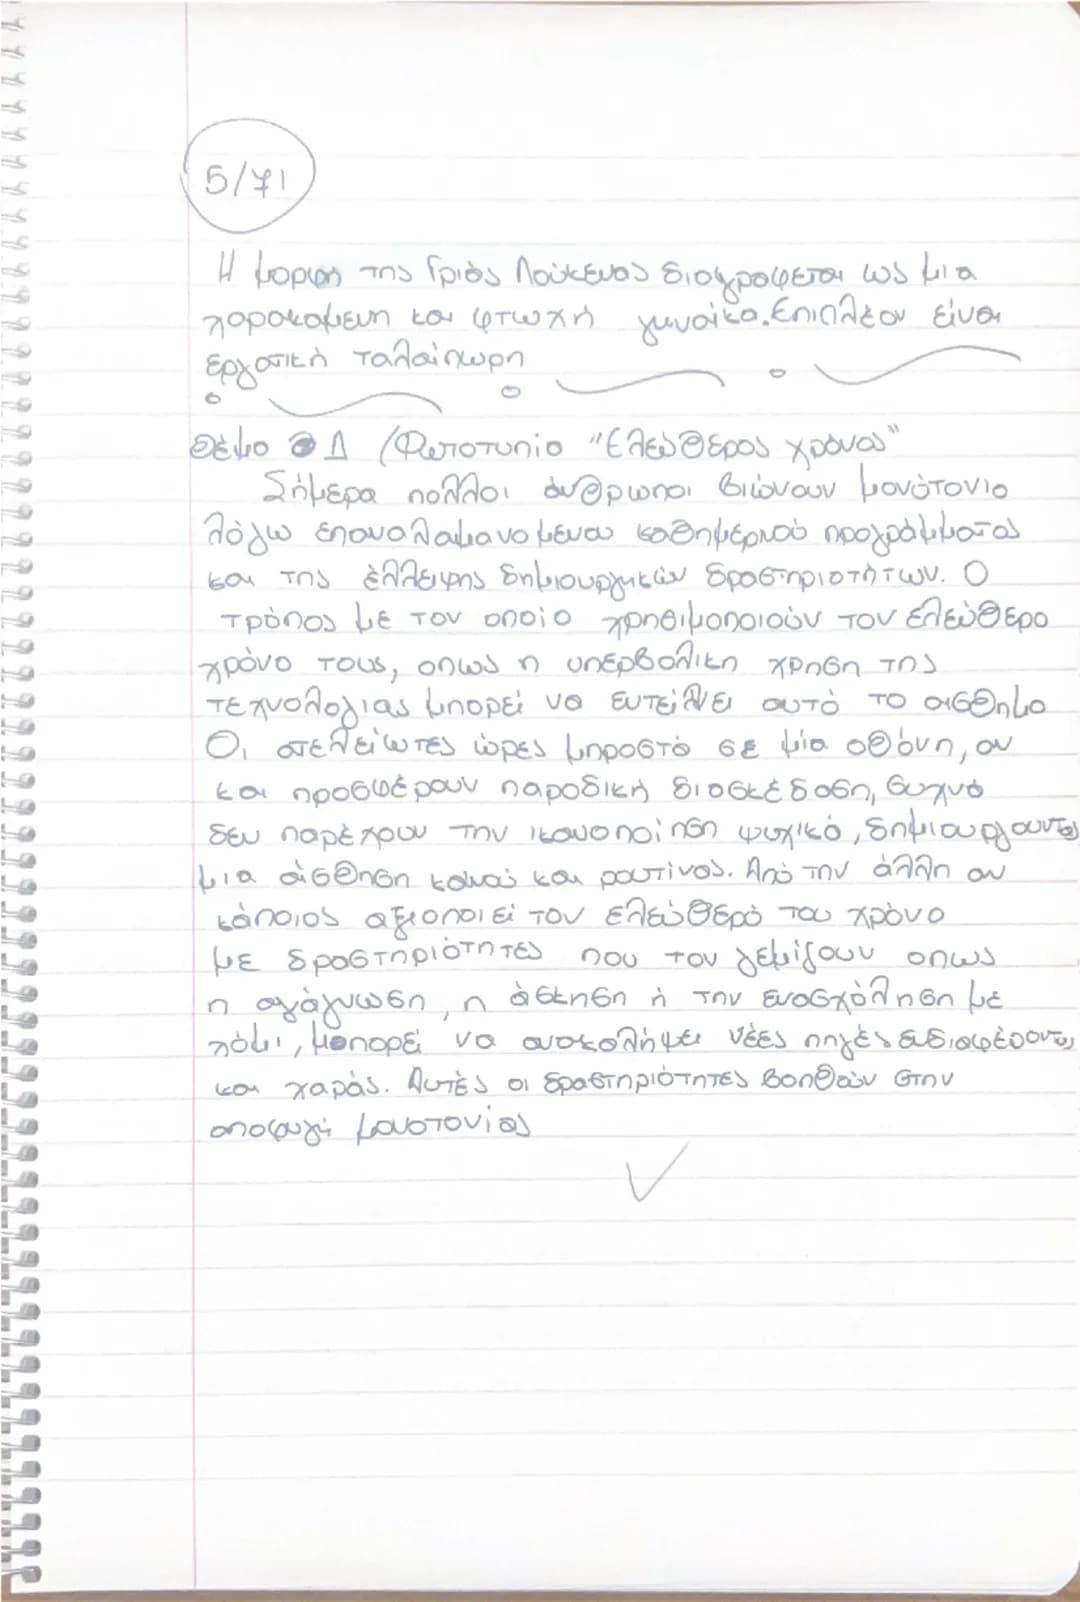 5/71
Η μορφη της Γριάς Λούκενας διαγραφεται ως μια
χαροκαμενη και φτωχή γυναίκα. Επιπλέον είναι
εργατική ταλαίπωρη
Θέμα Δ (Φωτοτυπία "Ελεύθερος χρόνος"
Σήμερα πολλοι άνθρωποι βιώνουν μονότονια
λόγω επαναλαμανομενου καθημερινού προγράμματος
και της έλλειψης δημιουργικών δραστηριοτήτων. Ο
τρόπος με τον οποίο χρησιμοποιούν τον ελεύθερο
χρόνο τους, οπως η υπερβολικη χρηση της
τεχνολογιας μπορεί να εντείνει αυτό το αισθημα
Οι ατελείωτες ώρες μπροστά σε μία οθόνη, αν
και προσφέρουν παροδική διασκέδαση, συχνά
δεν παρέχουν την ικανοποίηση ψυχικά, δημιουργουντας
μια αίσθηση κενού και ρουτίνας. Από την άλλη αν
κάποιος αξιοποιεί τον ελεύθερό του χρόνο
με δραστηριότητες που τον γεμίζουν οπως
η ανάγνωση, η άσκηση ή την ενασχόληση με
χόμπι, μπορεί να ανακαλύψει νέες πηγές ενδιαφέροντος
και χαράς. Αυτές οι δραστηριότητες βοηθούν στην
αποφυγή μονοτονίας